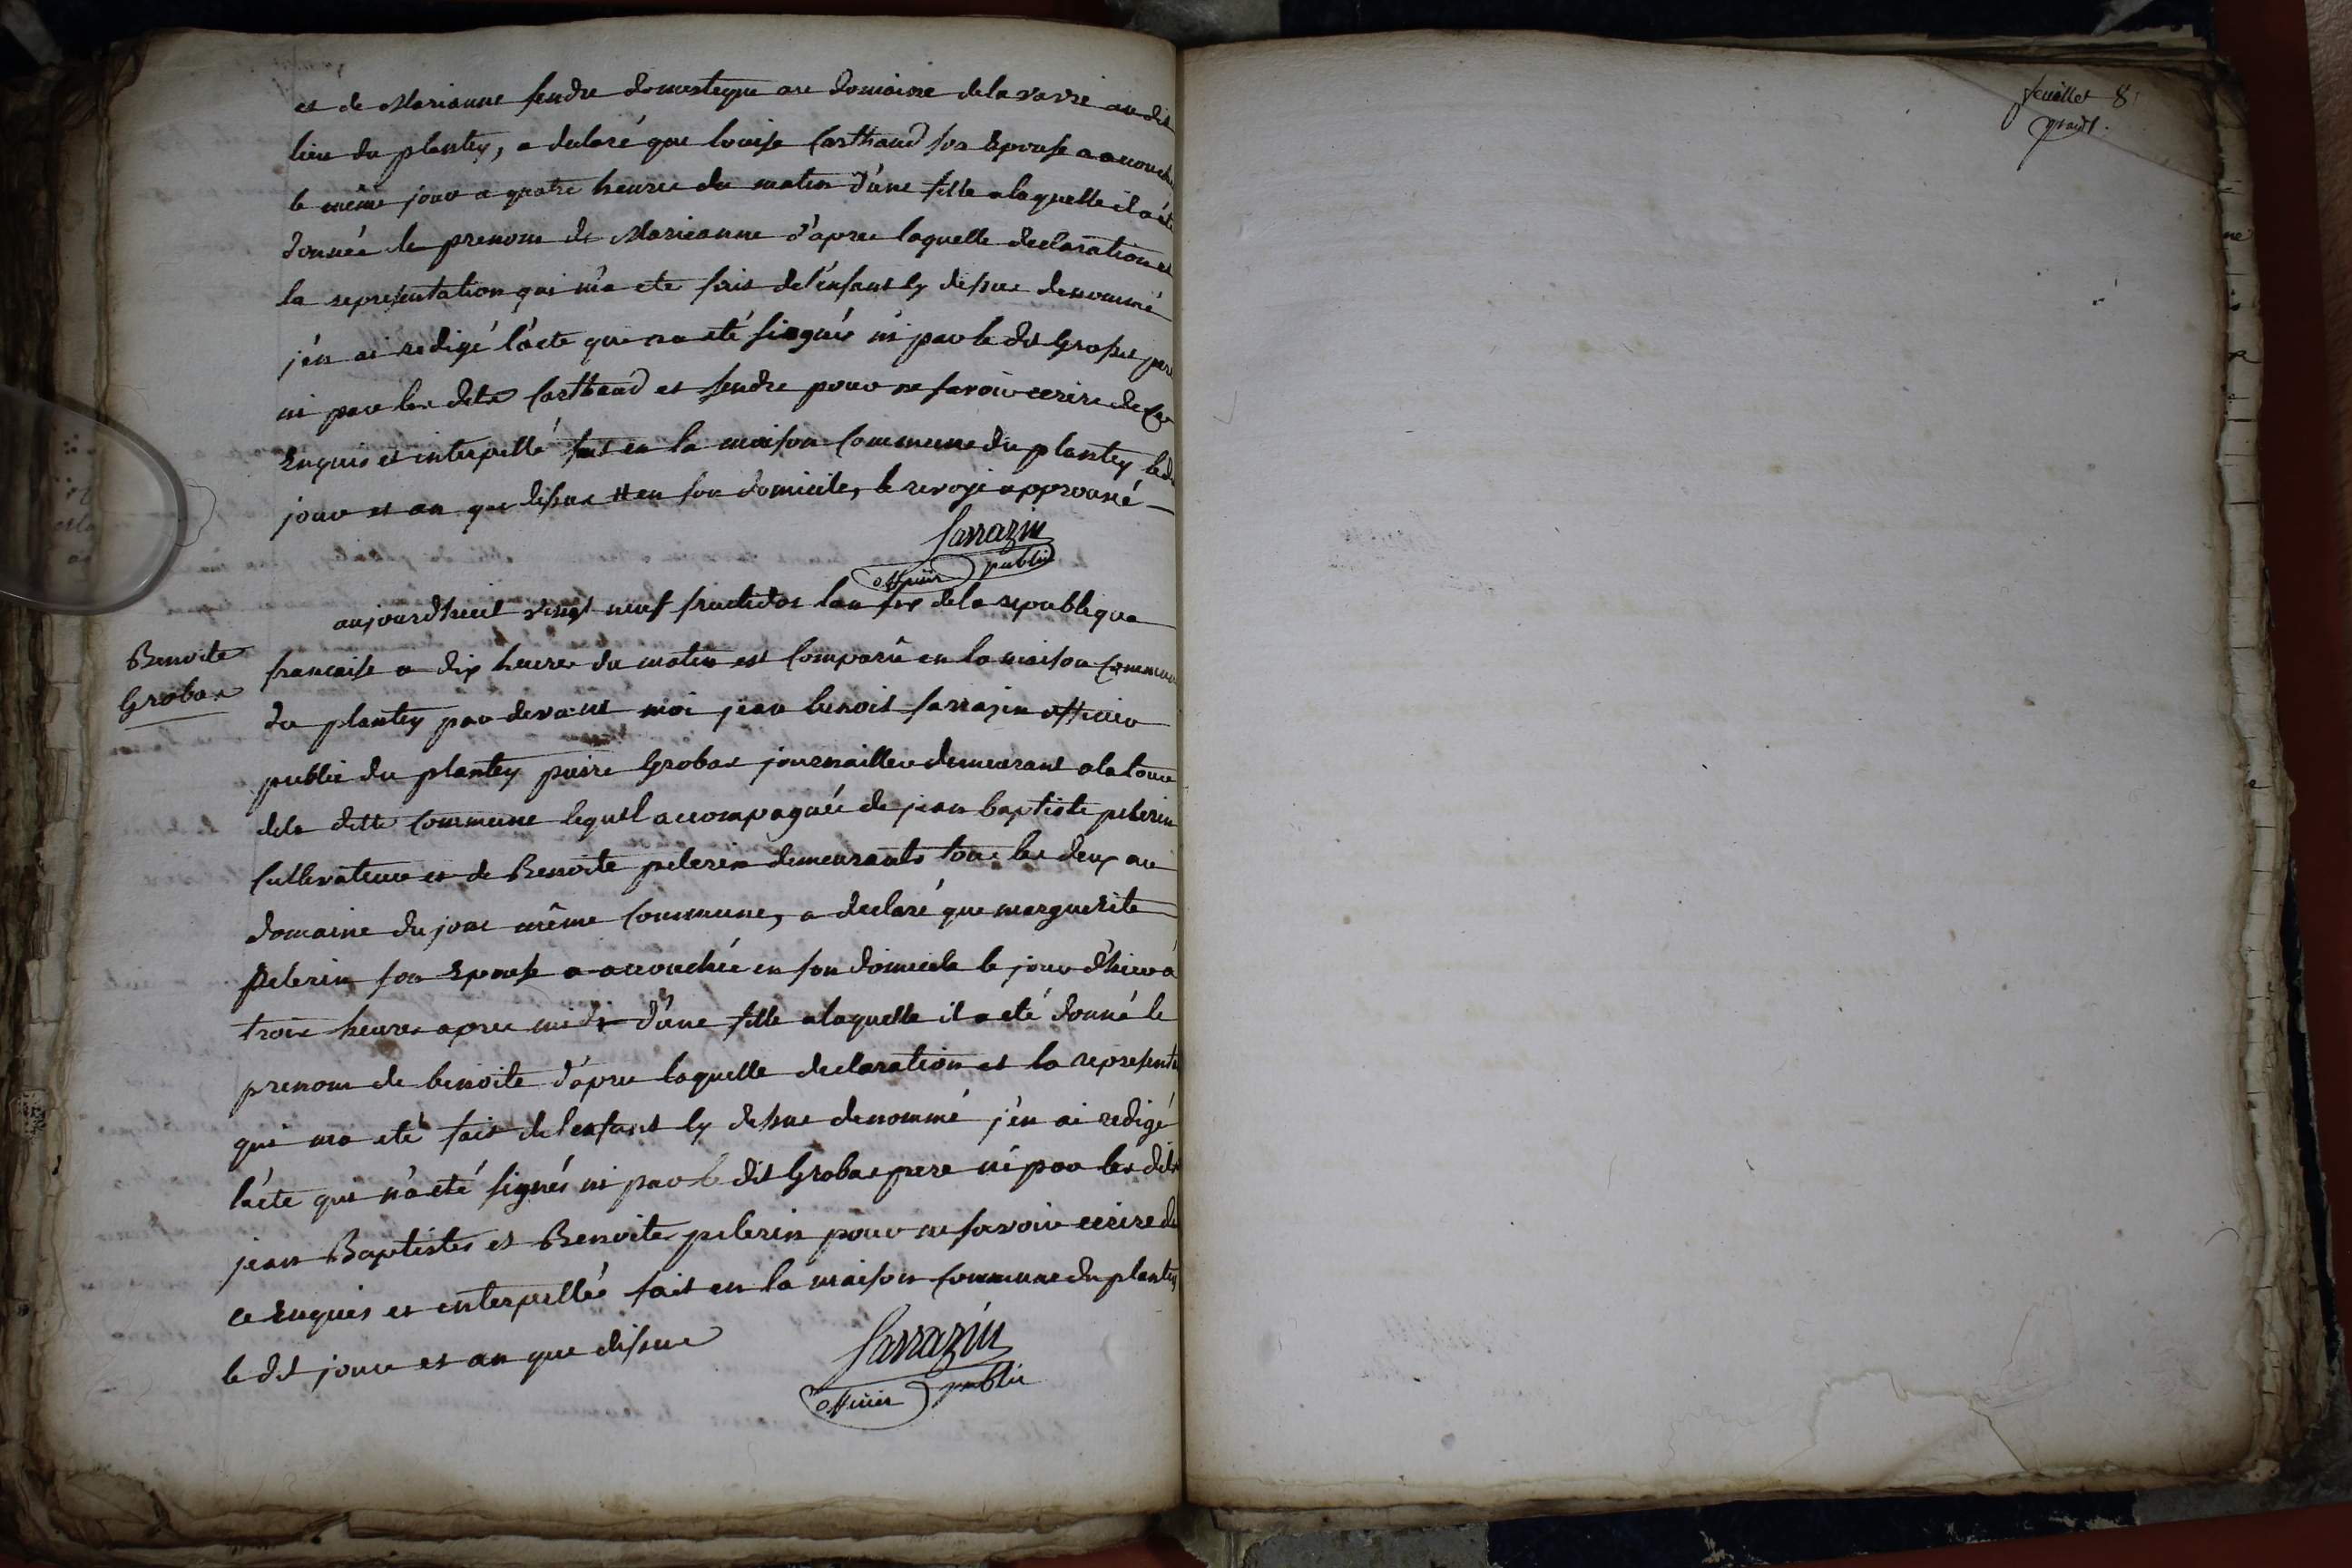 et de Marianne fendre domestique au domaine de la varre au dit
lieu du plantey, a declaré que louise Carthaud son Epouse a accouché
le même jour a quatre heures du matin d'une fille a laquelle il a été
donnée le prenom de Marieanne d'apres laquelle declaration et
la representation qui m'a ete fait de l'enfant cy dessus denommé
j'en ai redigé l'acte qui n'a eté signés ni par le dit pere
ni par les dits Carthaud et fendre pour ne savoir ecrire de ce
Enquis et interpellé fait en la maison Commune du plantey
jour et an que dessus # en son domicile, le renvoje approuvé
Sarrazin
officier public
aujourdhuit vingt neuf fructidor l'an de la republique
francaise a dix heures du matin est Comparû en la maison Commune
du plantey par devant moi jean benoit sarrazin officier
public du plantey pierre Grobas journaillier demeurant a la toure
de la ditte Commune lequel accompagnée de jean baptiste pelerin
Cultivateur et de Benoite pelerin demeurants tous les deux au
domaine du jons même Commune, a declaré que marguerite
Pelerin son Epouse a accouchée en son domicile le jour d'hier a
trois heures apres midi d'une fille a laquelle il a eté donné le
prenom de benoite d'apres laquelle declaration et la represent
qui ma eté fait de l'enfant cy dessus denommé j'en ai redigé
l'acte qui n'a eté signés ni par le dit Grobas pere ni par les dits
jean Baptiste et Benoite pelerin pour ne savoir ecrire de
ce Enquis et interpellés fait en la maison Commune du plantey
le dit jour et an que dessus
Sarrazin
officier public
Benoite
Grobas
feuillet 8